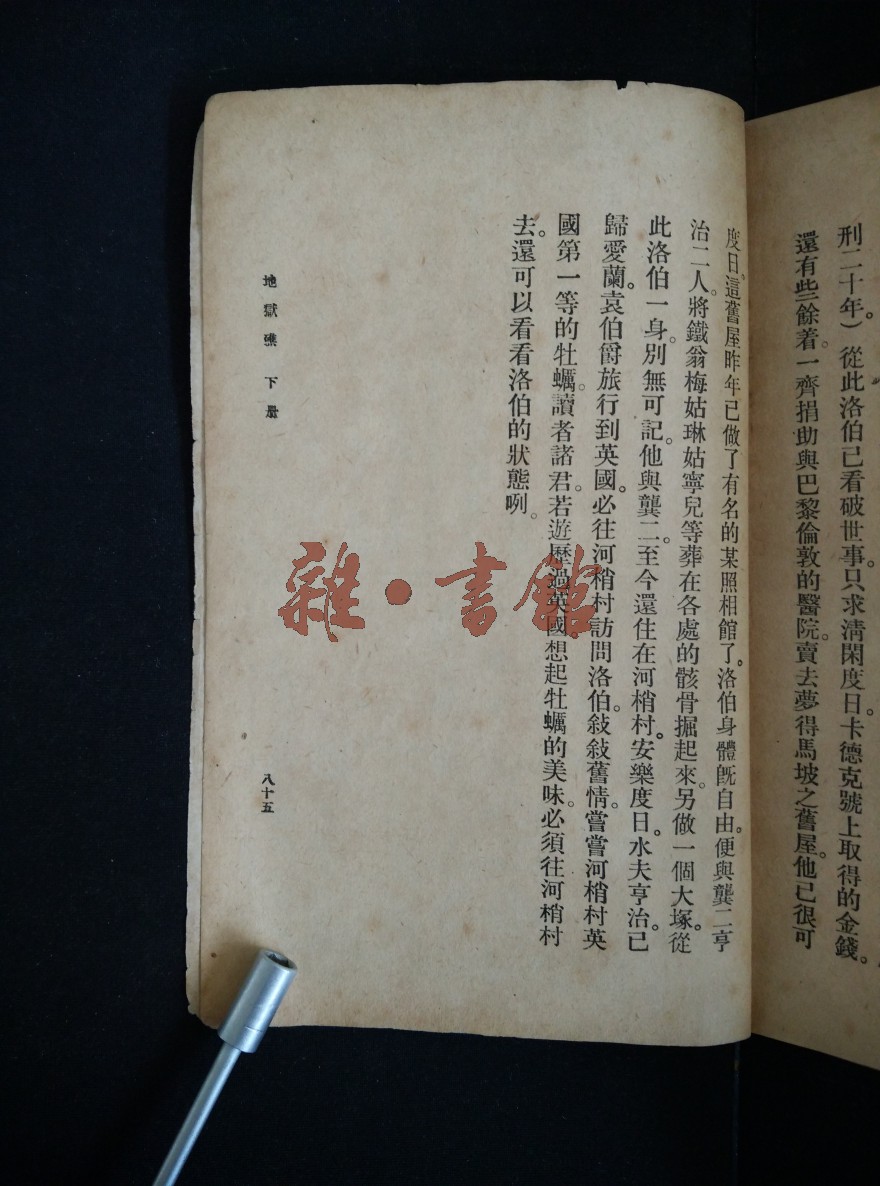 刑二十年）從此洛伯已看破世事。只求清閑度日。卡德克號上取得的金錢。
還有些餘着。一齊捐助與巴黎倫敦的醫院。賣去夢得馬坡之舊屋。他已很可
度日。這舊屋昨年已做了有名的某照相館了。洛伯身體既自由。便與龔二亨
治二人。將鐵翁梅姑琳姑寧兒等葬在各處的骸骨掘起來。另做一個大塚。從
此洛伯一身。別無可記。他與龔二。至今還住在河梢村。安樂度日。水夫亨治。已
歸愛蘭。袁伯爵旅行到英國。必往河梢村訪問洛伯。敍敍舊情。嘗嘗河梢村英
國第一等的牡蠣。讀者諸君。若遊歷過英國想起牡蠣的美味。必須往河梢村
去。還可以看看洛伯的狀態咧。
地獄礁 下册
八十五
雜·書館